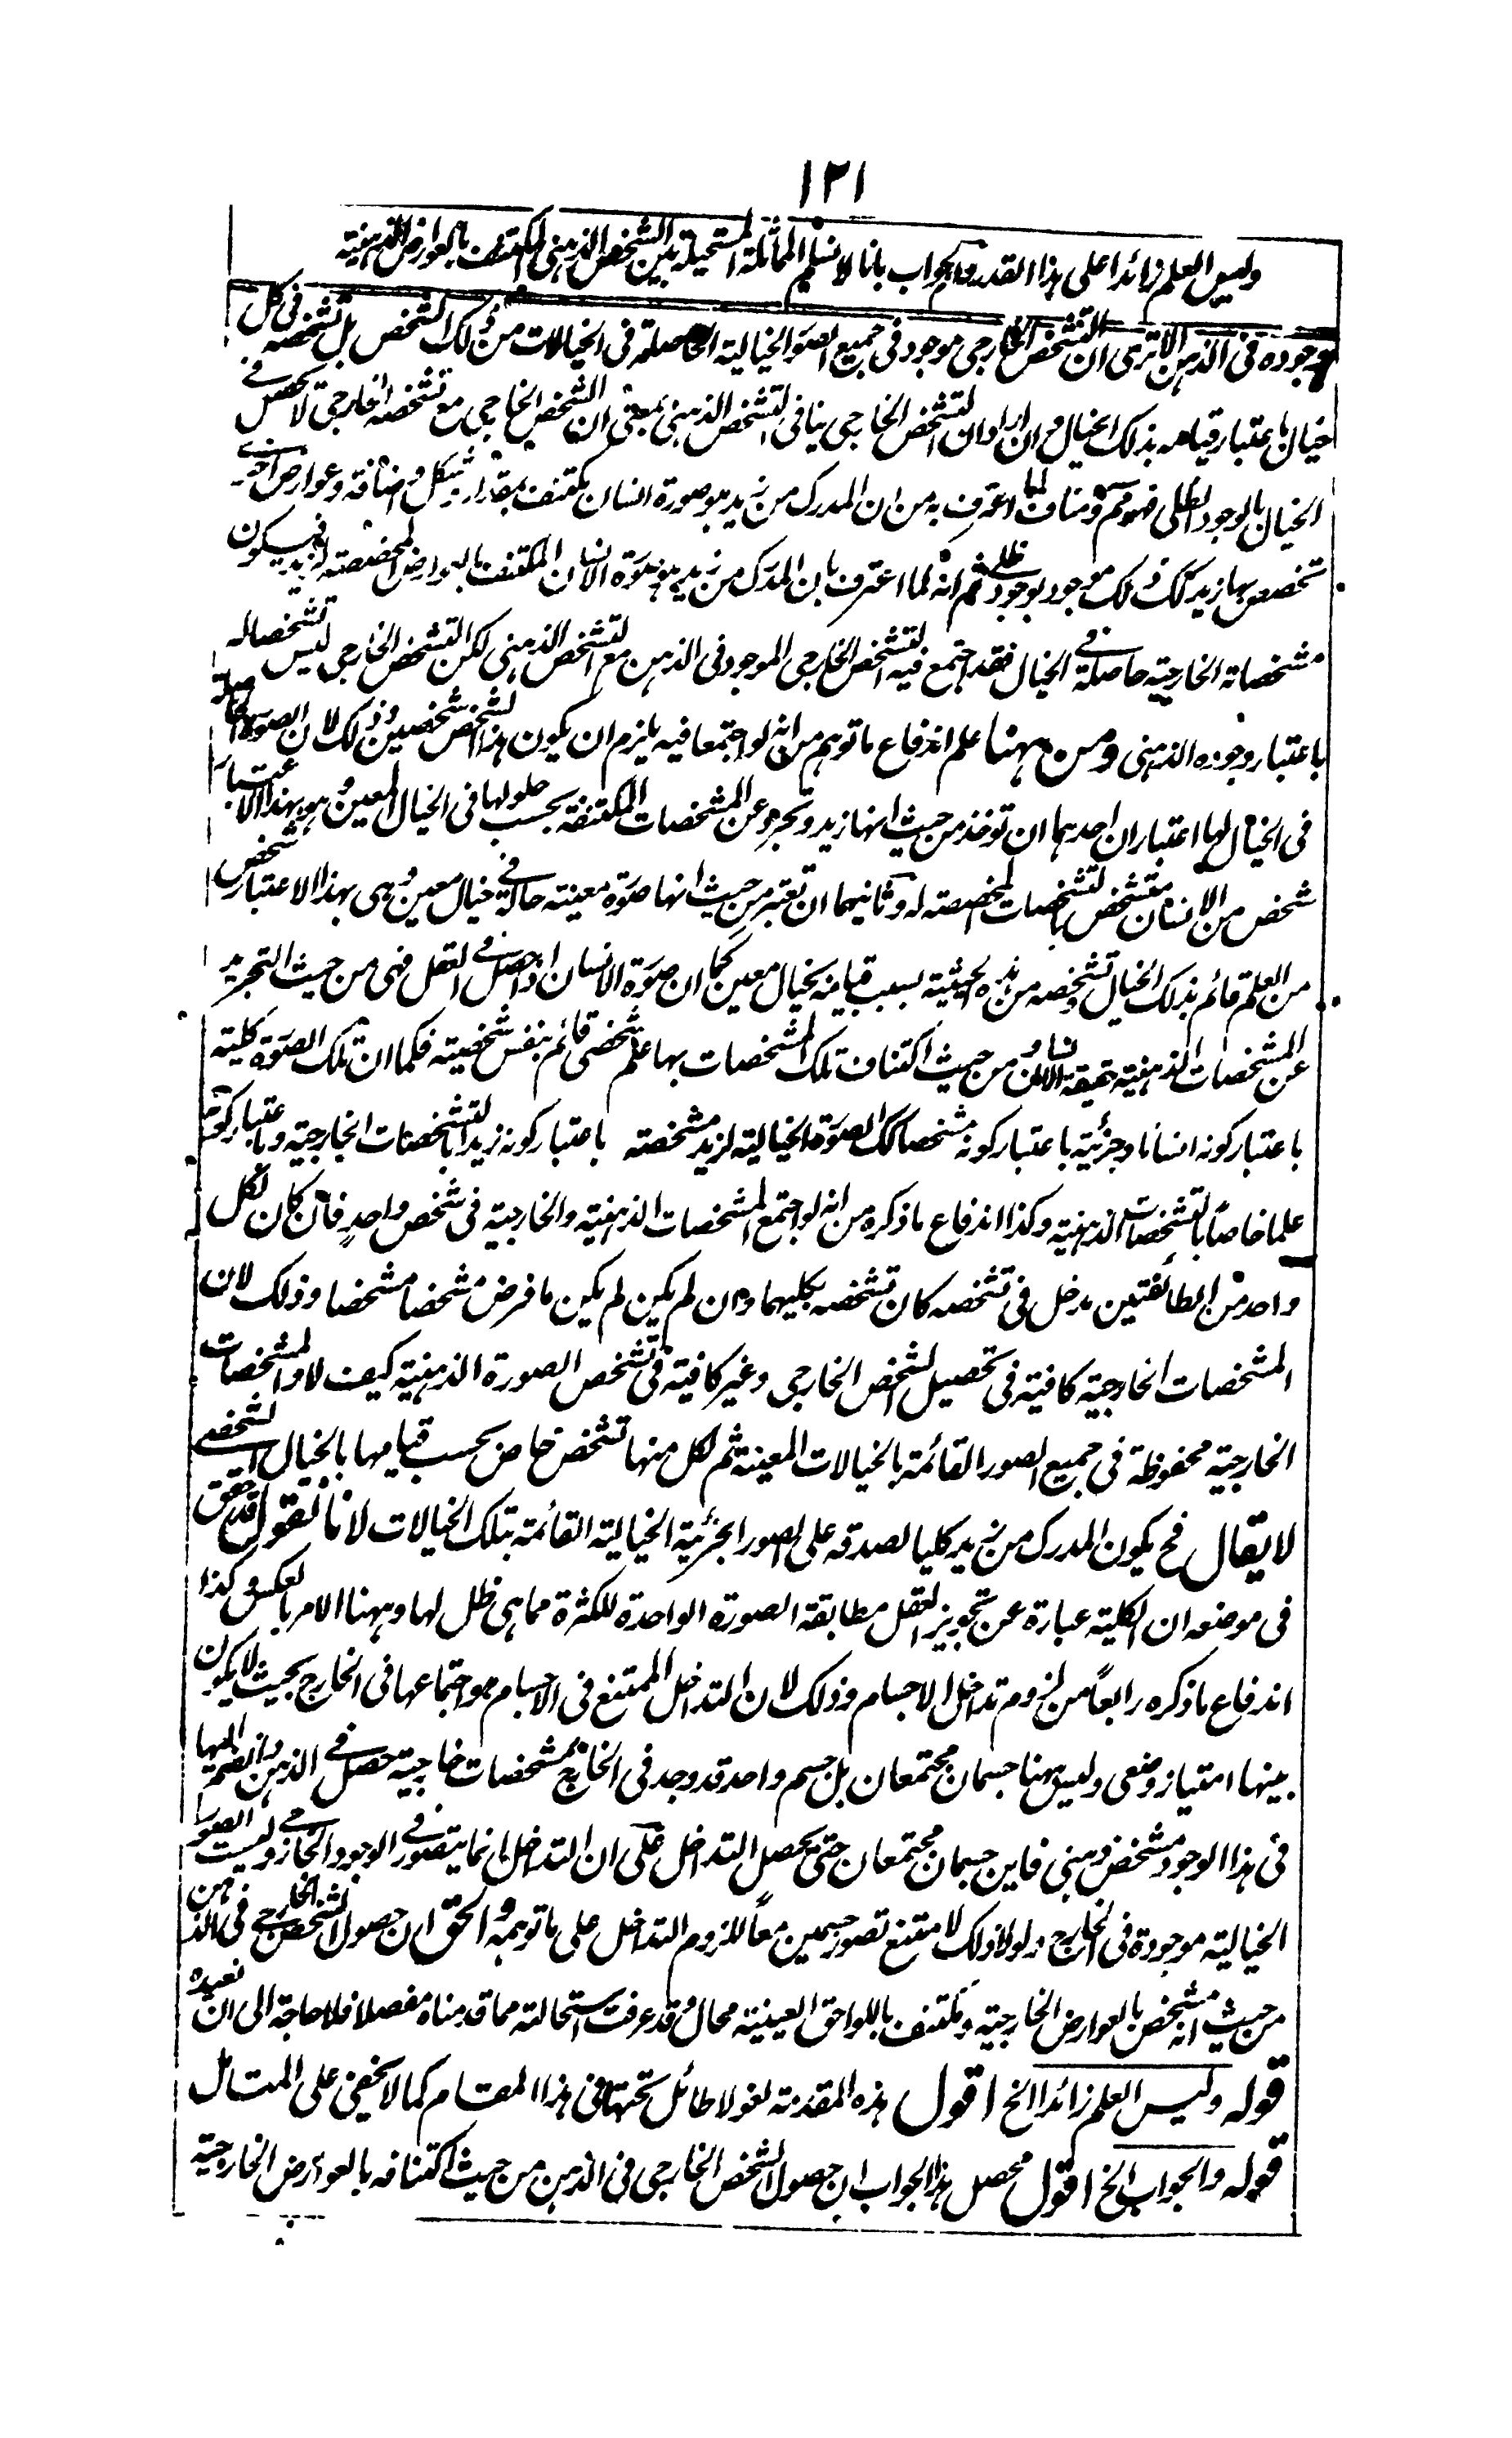 ١٢١
وليس العلم زائدا على هذا القدر والجواب بانا لا نسلم المماثلة المستحيلة بين الشخص الذهنى المكتنف بالعوارض الذهنية
وجوده فى الذهن الا ترى ان التشخص الخارجى موجود فى جميع الصور الخيالية الحاصلة فى الخيالات من ذلك الشخص بل تشخصه فى كل
خيال باعتبار قيامه بذلك الخيال وان اراد ان التشخص الخارجى ينافى التشخص الذهنى بمعنى ان الشخص الخارجى مع تشخصه الخارجى لا يحصل فى
الخيال بالوجود الظلى فهو مم ومناف لما اعترف به من ان المدرك من زيد هو صورة انسان مكتنف بمقدار وشكل واضافة وعوارض اخرى
تخصص بها زيد كل ذلك موجود بوجود ظلى ثم انه لما اعترف بان المدرك من زيد هو صورة الانسان المكتنف بالعوارض المخصصة لزيد فيكون
مشخصاته الخارجية حاصلة فى الخيال فقد اجتمع فيه التشخص الخارجى الموجود فى الذهن مع التشخص الذهنى لكن التشخص الخارجى ليس تشخصا له
باعتبار وجوده الذهنى ومن ههنا علم اندفاع ما توهم من انه لو اجتمعا فيه يلزم ان يكون هذا الشخص شخصين وذلك لان الصورة الحاصلة
فى الخيال لها اعتباران احدهما ان توخذ من حيث انها زيد وتجرد عن المشخصات المكتنفة بحسب حلولها فى الخيال المعين وهو بهذا الاعتبار
شخص من الانسان متشخص بالتشخصات المخصصة له وثانيهما ان تعتبر من حيث انها صورة معينة حالة فى خيال معين وهى بهذا الاعتبار شخص
من العلم قائم بذلك الخيال وتشخصه من هذه الحيثية بسبب قيامه بخيال معين كما ان صورة الانسان اذا حصل فى العقل فهى من حيث التجريد
عن المشخصات الذهنية حقيقة الانسان ومن حيث اكتناف تلك المشخصات بها علم شخصى قائم بنفس شخصية فكما ان تلك الصورة كلية
باعتبار كونه انسانا وجزئية باعتبار كونه مشخصا كك الصورة الخيالية لزيد مشخصة باعتبار كونه زيدا بالتشخصات الخارجية وباعتبار كونه
علما خاصا بالتشخصات الذهنية وكذا اندفاع ما ذكره من انه لو اجتمع المشخصات الذهنية والخارجية فى شخص واحد فان كان لكل
واحد من الطائفتين مدخل فى تشخصه كان تشخصه بكليهما وان لم يكن لم يكن ما فرض مشخصا مشخصا وذلك لان
المشخصات الخارجية كافية فى تحصيل الشخص الخارجى وغير كافية فى تشخص الصورة الذهنية كيف لا والمشخصات
الخارجية محفوظة فى جميع الصور القائمة بالخيالات المعينة ثم لكل منها تشخص خاص بحسب قيامها بالخيال الشخصى
لا يقال فح يكون المدرك من زيد كليا لصدقه على الصور الجزئية الخيالية القائمة بتلك الخيالات لانا نقول قد حقق
فى موضعه ان الكلية عبارة عن تجويز العقل مطابقة الصورة الواحدة للكثرة مما هى ظل لها وههنا الامر بالعكس وكذا
اندفاع ما ذكره رابعاً من لزوم تداخل الاجسام وذلك لان التداخل الممتنع فى الاجسام هو اجتماعها فى الخارج بحيث لا يكون
بينها امتياز وضعى وليس ههنا جسمان مجتمعان بل جسم واحد قد وجد فى الخارج بمشخصات خارجية حصل فى الذهن وانضم اليها
فى هذا الوجود مشخص ذهنى فاين جسمان مجتمعان حتى يحصل التداخل على ان التداخل انما يتصور فى الوجود الخارجى وليست الصور
الخيالية موجودة فى الخارج ولولا ذلك لامتنع تصور جسمين معاً للزوم التداخل على ما توهمه والحق ان حصول الشخص الخارجى فى الذهن
من حيث انه متشخص بالعوارض الخارجية ومكتنف باللواحق العينية محال وقد عرفت استحالته مما قدمناه مفصلا فلا حاجة الى ان نعيده
قوله وليس العلم زائدا الخ اقول هذه المقدمة لغو لا طائل تحتها فى هذا المقام كما لا يخفى على المتامل
قوله والجواب الخ اقول محصل هذا الجواب ان حصول الشخص الخارجى فى الذهن من حيث اكتنافه بالعوارض الخارجية